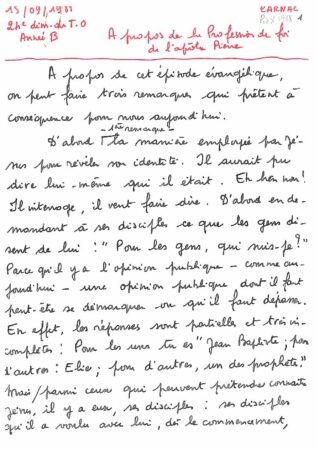 13/09/1988
24e dim. du T.O
Année B
CARNAC
1
A propos de la Profession de foi
de l'apôtre Pierre
A propos de cet épisode évangélique,
on peut faire trois remarques qui prêtent à
conséquence pour nous aujourd'hui.
- 1ère remarque -
D'abord la manière employée par Jé-
sus pour révéler son identité. Il aurait pu
dire lui-même qui il était. Eh bien non!
Il interroge, il veut faire dire. D'abord en de-
mandant à ses disciples ce que les gens di-
sent de lui : "Pour les gens, qui suis-je?"
Parce qu'il y a l'opinion publique - comme au-
jourd'hui - une opinion publique dont il faut
peut-être se démarquer ou qu'il faut dépasser.
En effet, les réponses sont partielles et très in-
complètes : Pour les uns tu es "Jean Baptiste; pour
d'autres : Elie; pour d'autres, un des prophètes."
Mais/parmi ceux qui peuvent prétendre connaître
Jésus, il y a eux, ses disciples : ses disciples
qu'il a voulu avec lui, dès le commencement,